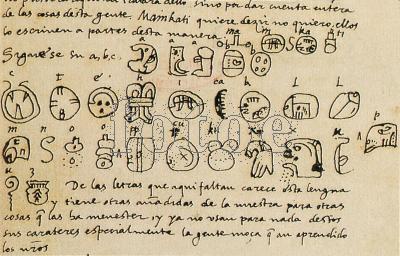 de las cosas desta gente. Mamkati quiere dezir no quiero, ellos
lo escriven a partes desta manera
ma i n ka ti
Siguese su a, b, c.
a a a b b
c t e h i ca k l l
m n o o p pp cu ku x x u u p
z
De las letras que aqui faltan carece esta lengua
y tiene otras añadidas de la nuestra para otras
cosas q las ha menester, y ya no usan para nada destos
sus carateres especialmente la gente moça q an aprendido
los nros